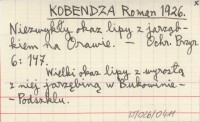 KOBENDZA Roman 1926.
Niezwykły okaz lipy z jarząb-
kiem na Orawie. — Ochr. Przyr.
6: 147.
Wielki okaz lipy z wyrosłą
z niej jarzębiną w Bukowinie-
-Podszklu.